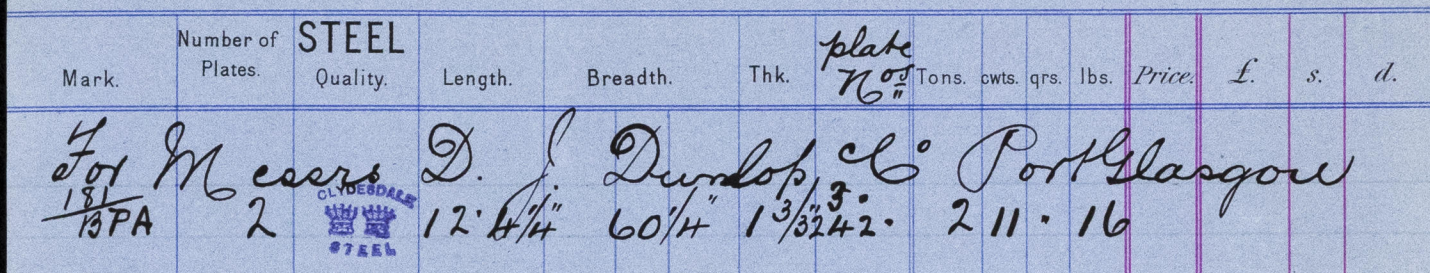 Mark. Number of Plates. STEEL Quality. Length. Breadth. Thk. plate Nos Tons. cwts. qrs. lbs. Price. £. s. d.
For Messrs D. J. Dunlop & Co Port Glasgow
181/BPA 2 CLYDESDALE STEEL 12' 4 1/4" 60 1/4" 1 3/32" 3. 42. 2 11 · 16